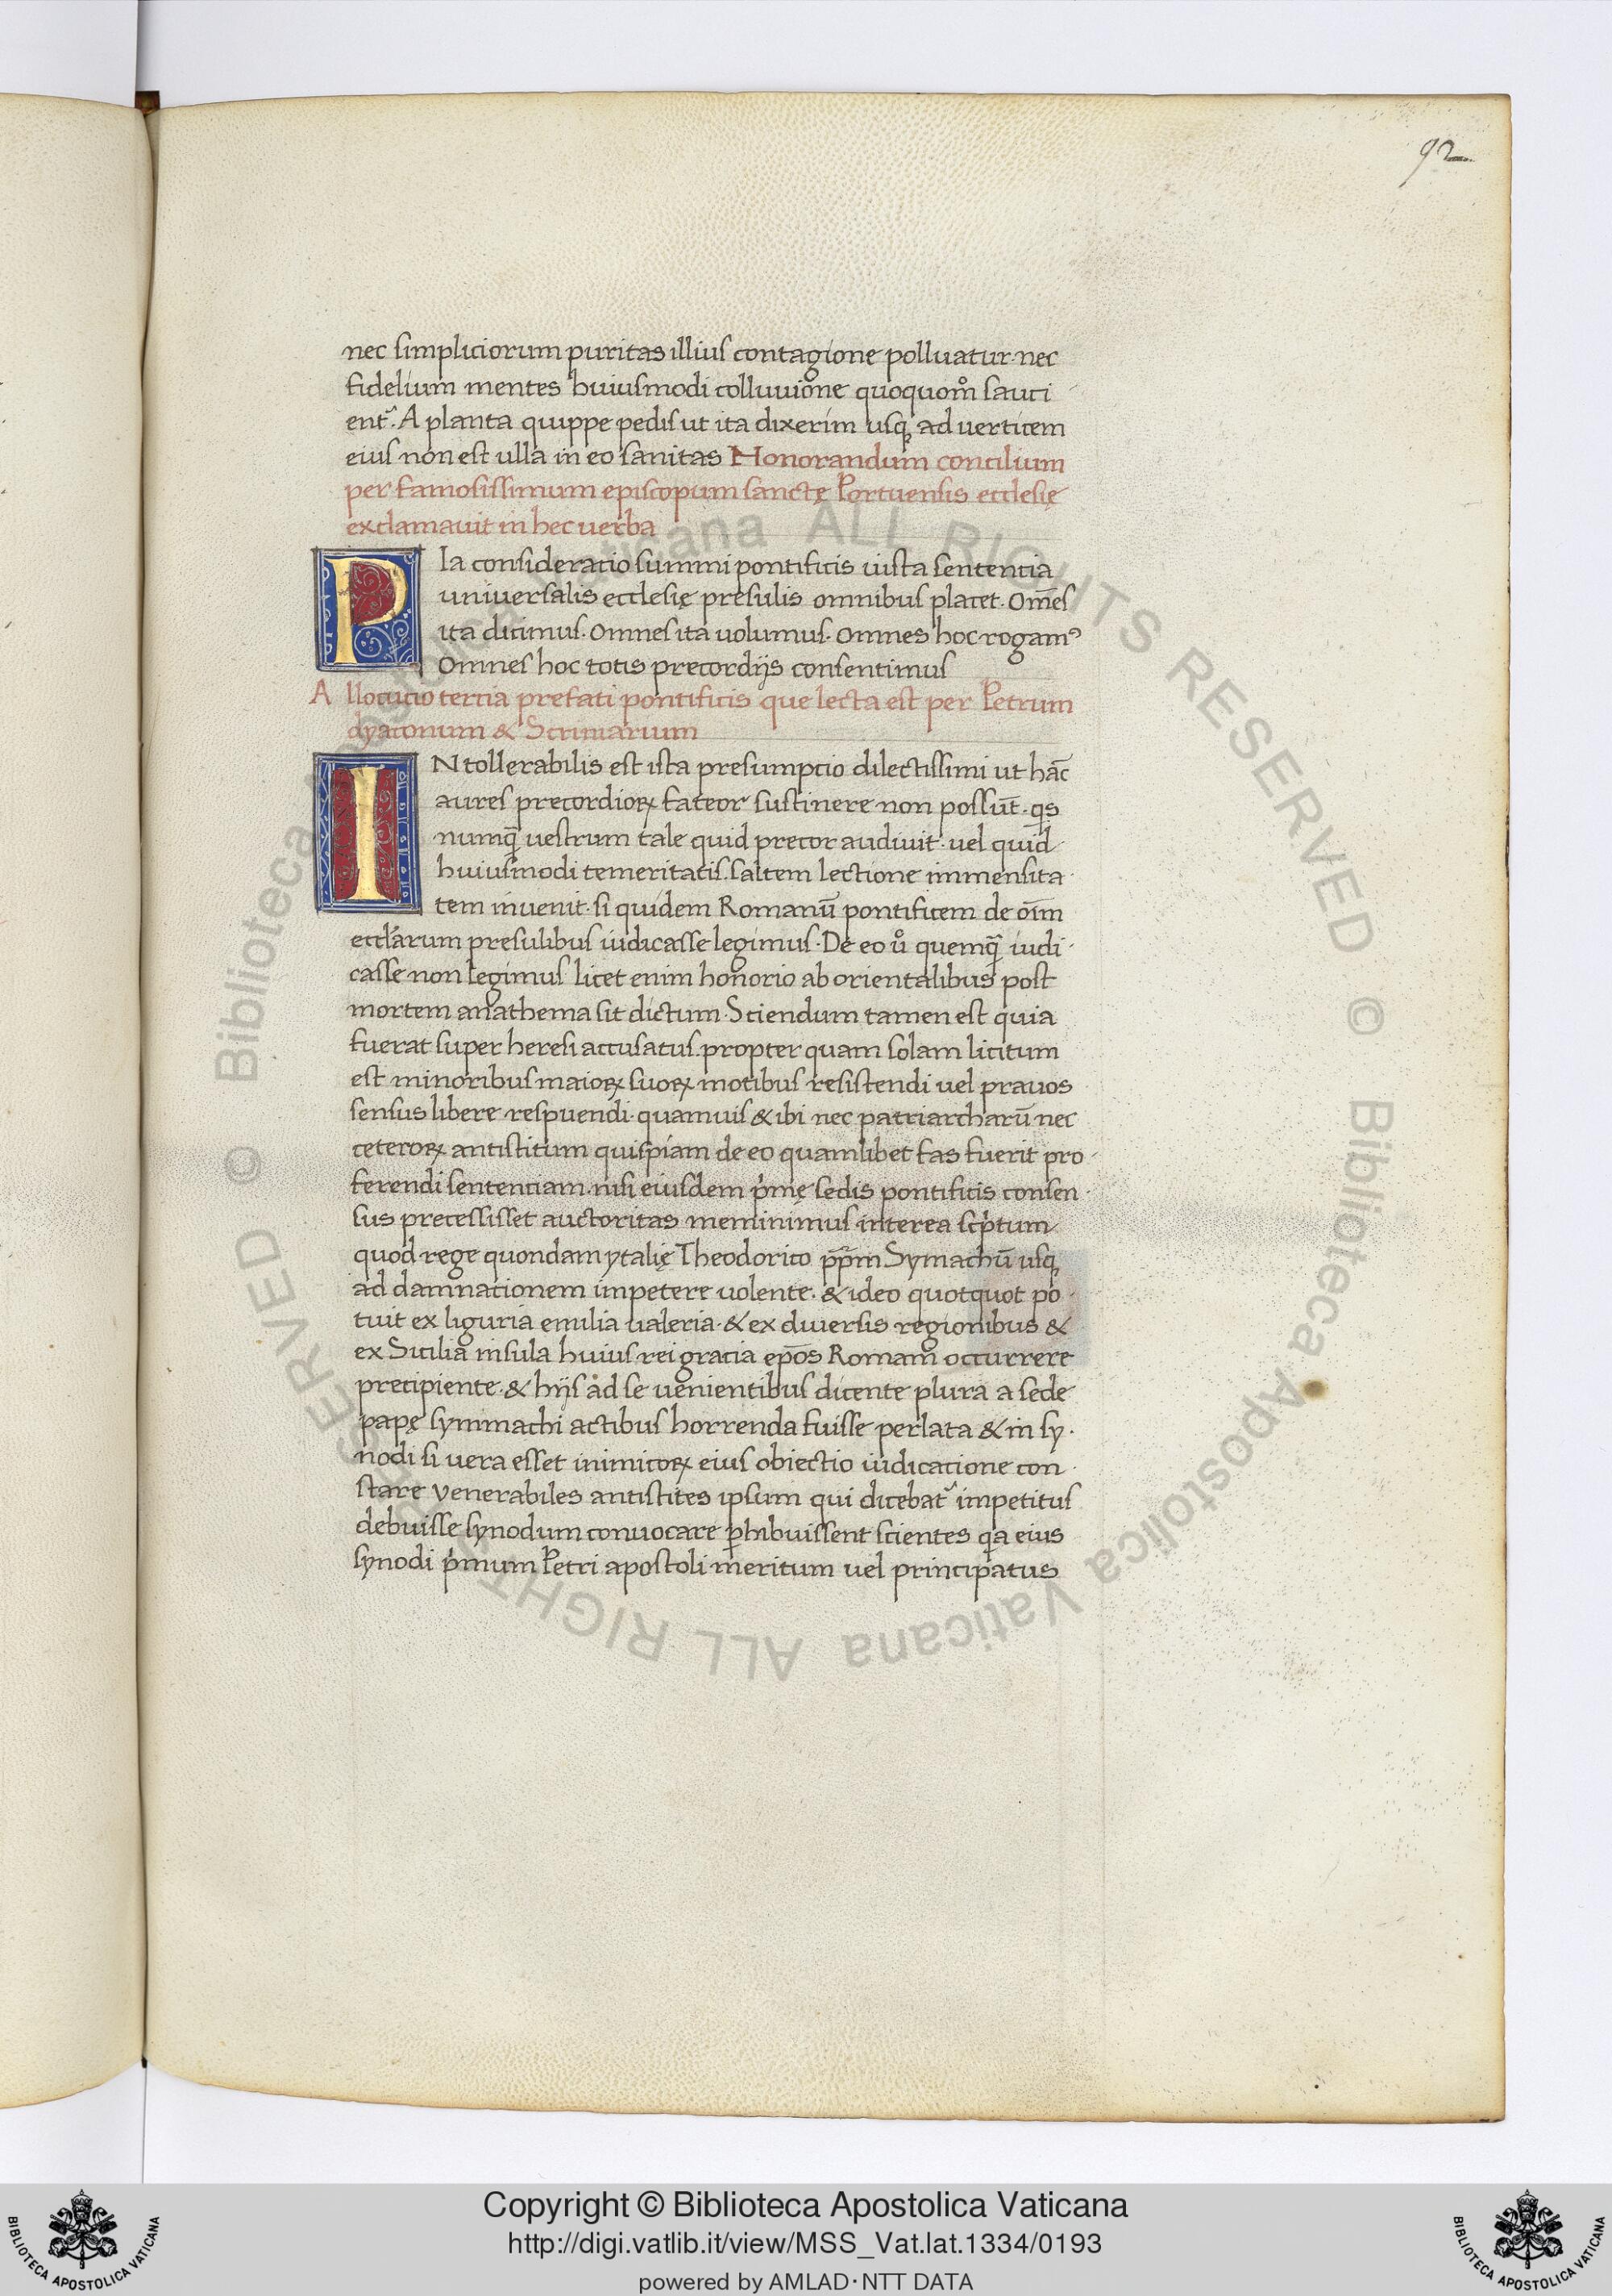 92
nec simpliciorum puritas illius contagione polluatur. nec
fidelium mentes huiusmodi colluuione quoquom̊ sauci
ent᷑. A planta quippe pedis ut ita dixerim usqꝫ ad uerticem
eius non est ulla in eo sanitas Honorandum concilium
per famosissimum episcopum sanctę Portuensis ecclesię
exclamauit in hec uerba
PIa consideratio summi pontificis iusta sententia
uniuersalis ecclesię presulis omnibus placet. Om̅es
ita dicimus. Omnes ita uolumus. Omnes hoc rogamꝰ
Omnes hoc totis precordijs consentimus
Allocucio tercia prefati pontificis que lecta est per Petrum
dyaconum & Scriniarium
INtollerabilis est ista presumptio dilectissimi ut ha̅c
aures precordioꝝ fateor sustinere non possu̅t. qs
numq̅ uestrum tale quid precor audiuit. uel quid
huiusmodi temeritatis. saltem lectione immensita
tem inuenit. si quidem Romanu̅ pontificem de oi̅m
eccl̅arum presulibus iudicasse legimus. De eo ů quemq̅ iudi
casse non legimus licet enim honorio ab orientalibus post
mortem anathema sit dictum. Sciendum tamen est quia
fuerat super heresi accusatus. propter quam solam licitum
est minoribus maioꝝ suoꝝ motibus resistendi uel prauos
sensus libere respuendi. quamuis & ibi nec patriarcharu̅ nec
ceteroꝝ antistitum quispiam de eo quamlibet fas fuerit pro
ferendi sententiam. nisi eiusdem p̍mę sedis pontificis consen
sus precessisset auctoritas meminimus interea scp̍tum
quod rege quondam ytalię Theodorico pp̅m Symachu̅ usqꝫ
ad damnationem impetere uolente. & ideo quotquot po
tuit ex liguria emilia ualeria. & ex diuersis regionibus &
ex Sicilia insula huius rei gracia ep̅os Romam occurrere
precipiente. & hijs ad se uenientibus dicente plura a sede
papę symmachi actibus horrenda fuisse perlata & in sy
nodi si uera esset inimicoꝝ eius obiectio iudicatione con
stare venerabiles antistites ipsum qui dicebat᷑ impetitus
debuisse synodum conuocare ꝑhibuissent scientes qa eius
synodi p̍mum Petri apostoli meritum uel principatus
© Biblioteca Apostolica Vaticana ALL RIGHTS RESERVED © Biblioteca Apostolica Vaticana ALL RIGHTS RESERVED
BIBLIOTECA APOSTOLICA VATICANA
Copyright © Biblioteca Apostolica Vaticana
http://digi.vatlib.it/view/MSS_Vat.lat.1334/0193
powered by AMLAD·NTT DATA
BIBLIOTECA APOSTOLICA VATICANA